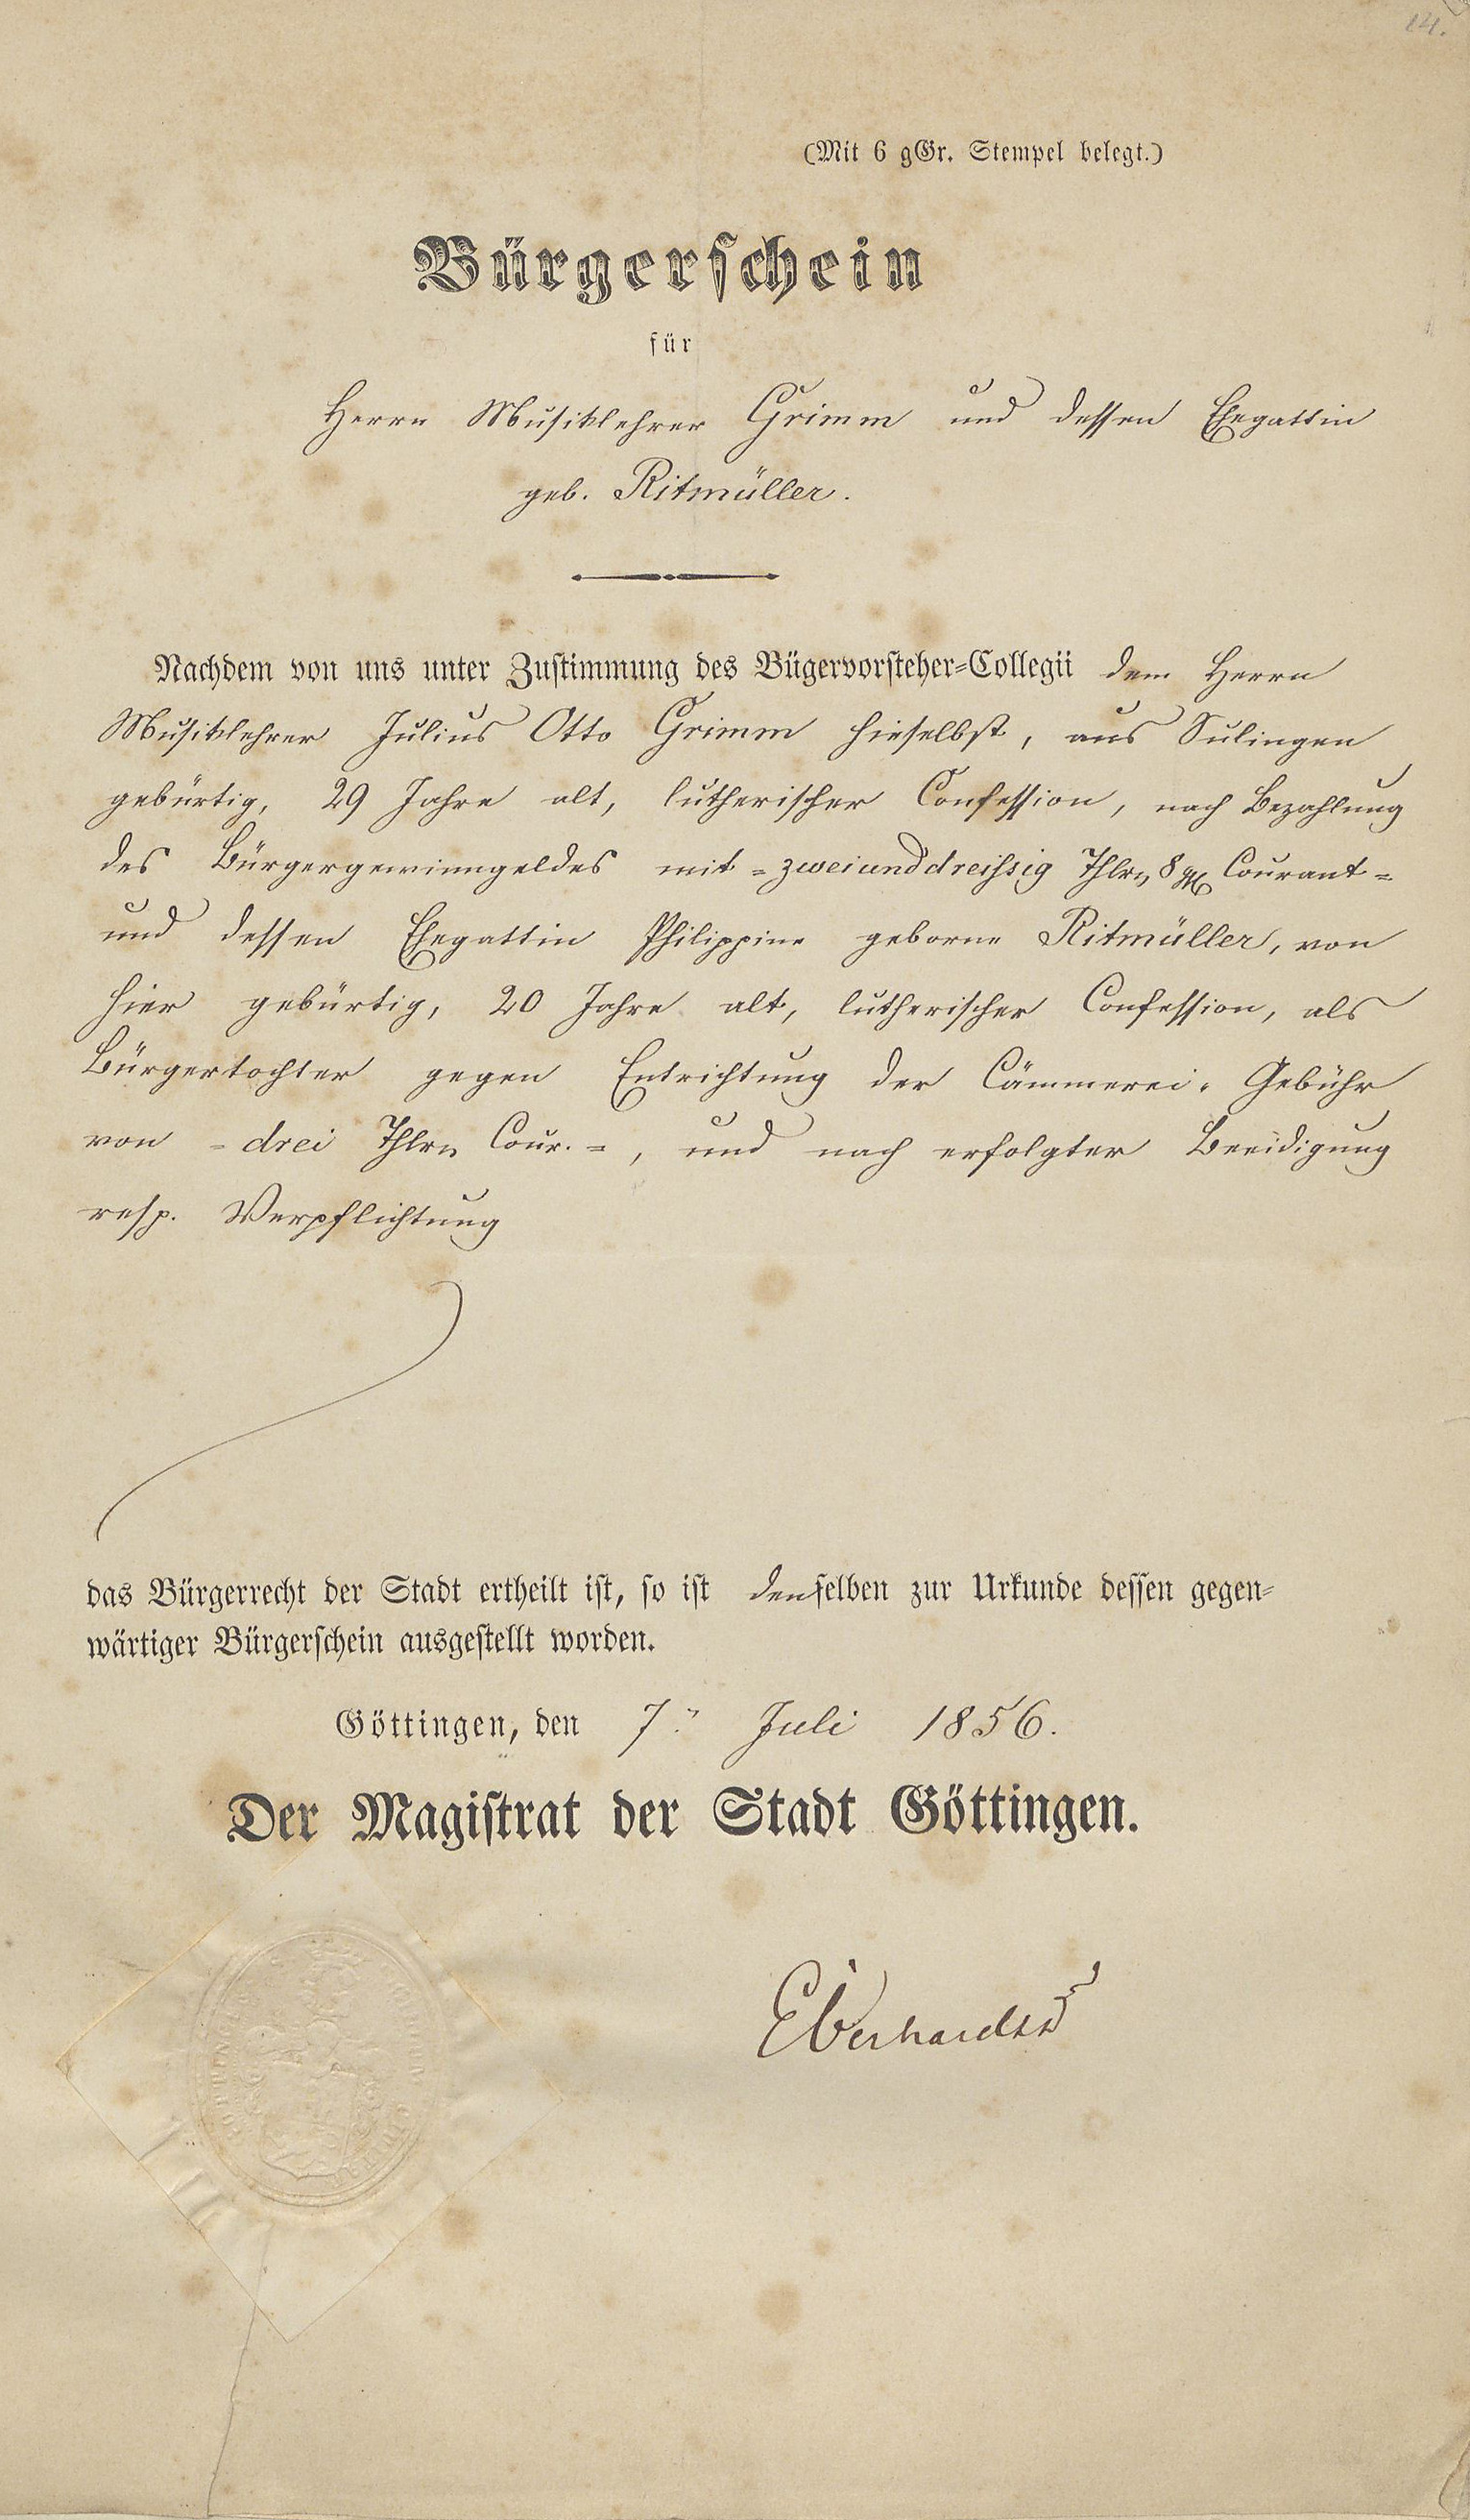 14.
(Mit 6 gGr. Stempel belegt.)
Bürgerschein
für
Herrn Musiklehrer Grimm und dessen Ehegattin
geb. Ritmüller.
Nachdem von uns unter Zustimmung des Bügervorsteher=Collegii dem Herrn
Musiklehrer Julius Otto Grimm hieselbst, aus Sulingen
gebürtig, 29 Jahre alt, lutherischer Confession, nach Bezahlung
des Bürgergewinngeldes mit = zweiunddreissig Thlrn 8 Courant =
und dessen Ehegattin Philippine geborne Ritmüller, von
hier gebürtig, 20 Jahre alt, lutherischer Confession, als
Bürgertochter gegen Entrichtung der Cämmerei-Gebühr
von = drei Thlrn Cour. =, und nach erfolgter Beeidigung
resp. Verpflichtung
das Bürgerrecht der Stadt ertheilt ist, so ist denselben zur Urkunde dessen gegen=
wärtiger Bürgerschein ausgestellt worden.
Göttingen, den 7. Juli 1856.
Der Magistrat der Stadt Göttingen.